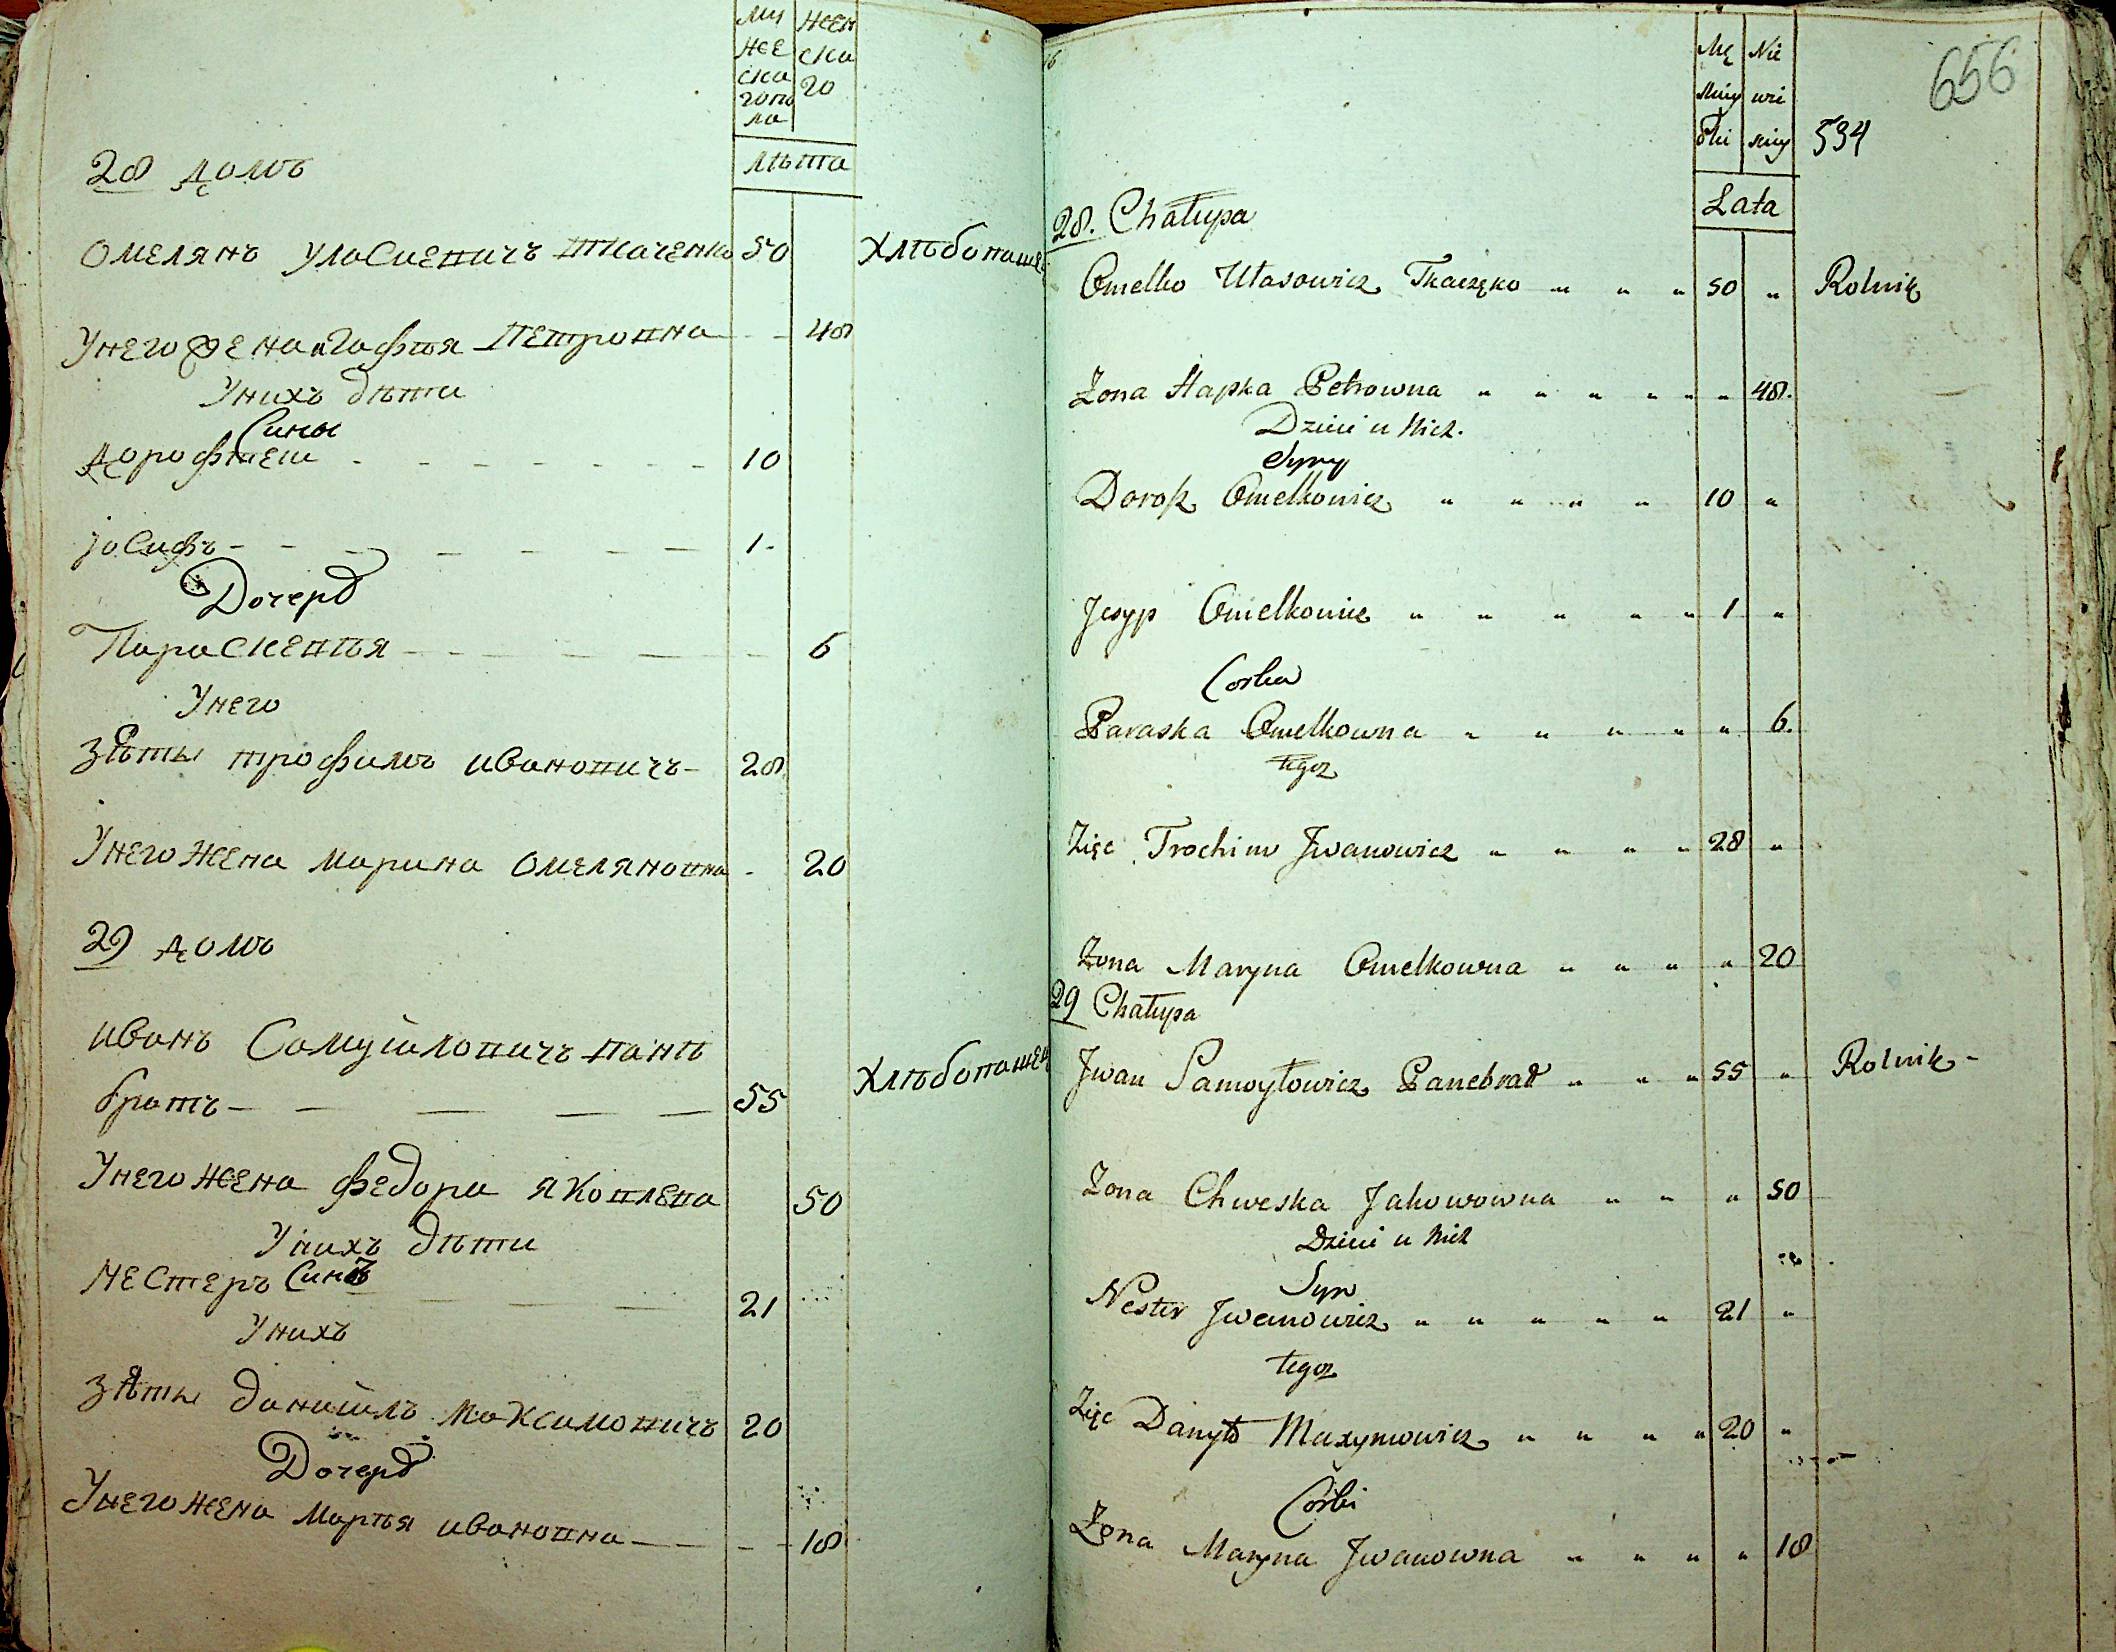 му
же
ска
гопо
ла
жен
ска
го
лѣта
28 домъ
Омелянъ Уласиевичъ Ткаченко 50 Хлѣбопаше
У него жена Агафья Петровна - - 48
У нихъ дѣти
Сины
Дорофтей - - - - - - - 10
Іосифъ - - - - - - 1.
Дочерь
Параскевья - - - - - 6
У него
Зѣть Трофимъ Ивановичъ - 28
У него жена Марина Омеляновна - 20
29 домъ
Иванъ Самуйловичъ Пане
братъ - - - - - 55 Хлѣбопашец
У него жена Федора Яковлева 50
У нихъ дѣти
Нестеръ Синъ - - - 21
У нихъ
Зѣть Даниилъ Максимовичъ 20
Дочерь
У него жена Марья Ивановна - - - - 18
Mę Nie
skiey wie
Płci sciey 534
656
Lata
28. Chałupa
Omelko Ułasowicz Tkaczęko " " " 50 " Rolnik
Żona Hapka Petrowna " " " " " " 48.
Dzieci u Nich.
Syny
Dorosz Omelkowicz " " " " 10 "
Jesyp Omelkowicz " " " " " 1 "
Corka
Paraska Omelkowna " " " " " 6.
tegoz
Zięc Trochim Jwanowicz " " " " 28 "
Żona Maryna Omelkowna " " " " 20
29 Chałupa
Jwan Samoyłowicz Panebrat " " " 55 " Rolnik -
Żona Chweska Jakowowna " " " 50
Dzieci u Nich
Syn
Nester Jwanowicz " " " " " 21 "
tegoz
Zięc Danyło Maxymowicz " " " " 20 "
Córki
Żona Maryna Jwanowna " " " " 18